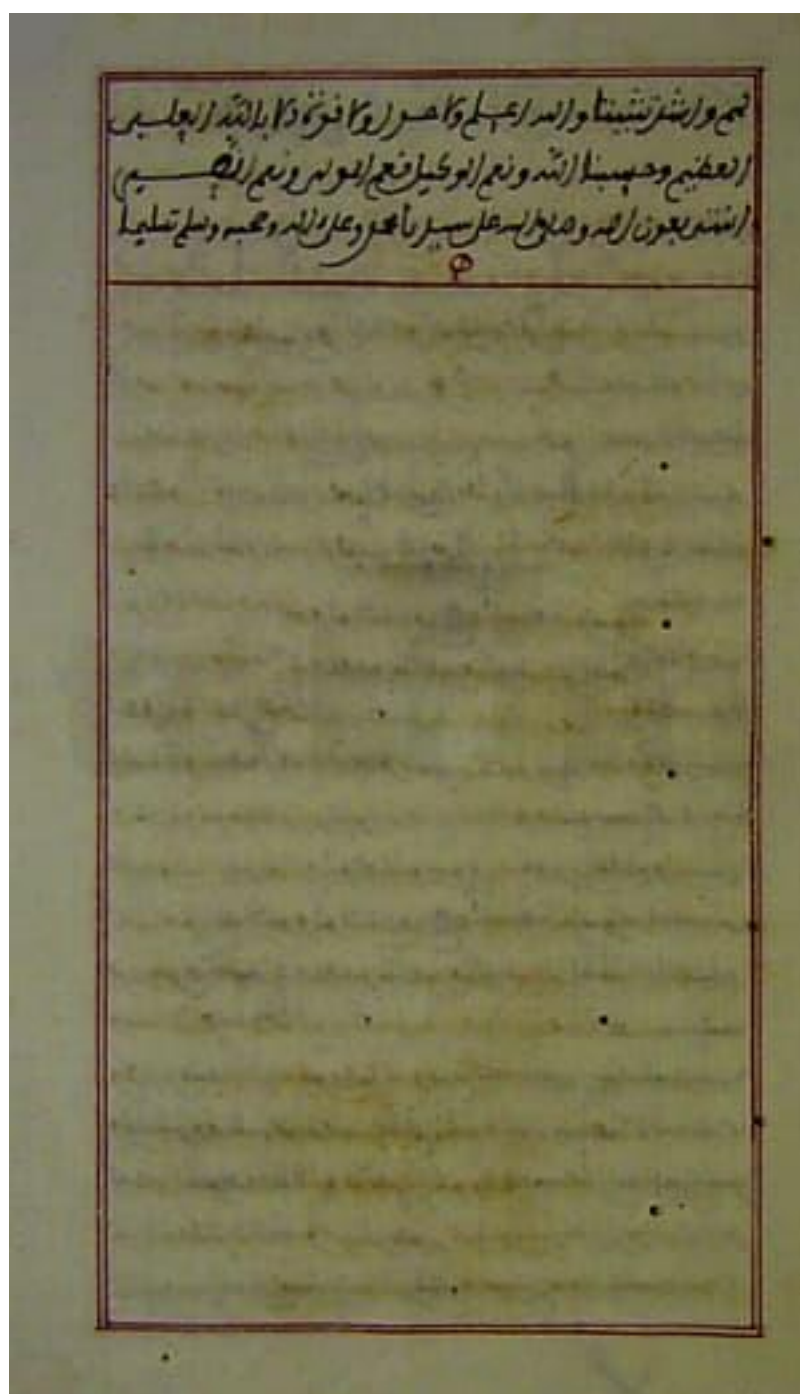 لهم واشد تثبيتا والله اعلم ولا حول ولا قوة الا بالله العلي
العظيم وحسبنا الله ونعم الوكيل فنعم المولى ونعم النصير
انتهى بعون الله وصلى الله على سيدنا محمد وعلى ءاله وصحبه وسلم تسليما